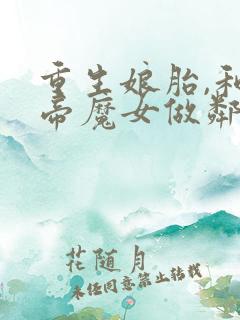 重生娘胎,和
帝魔女做鄰
花随月
未经同意禁止转载